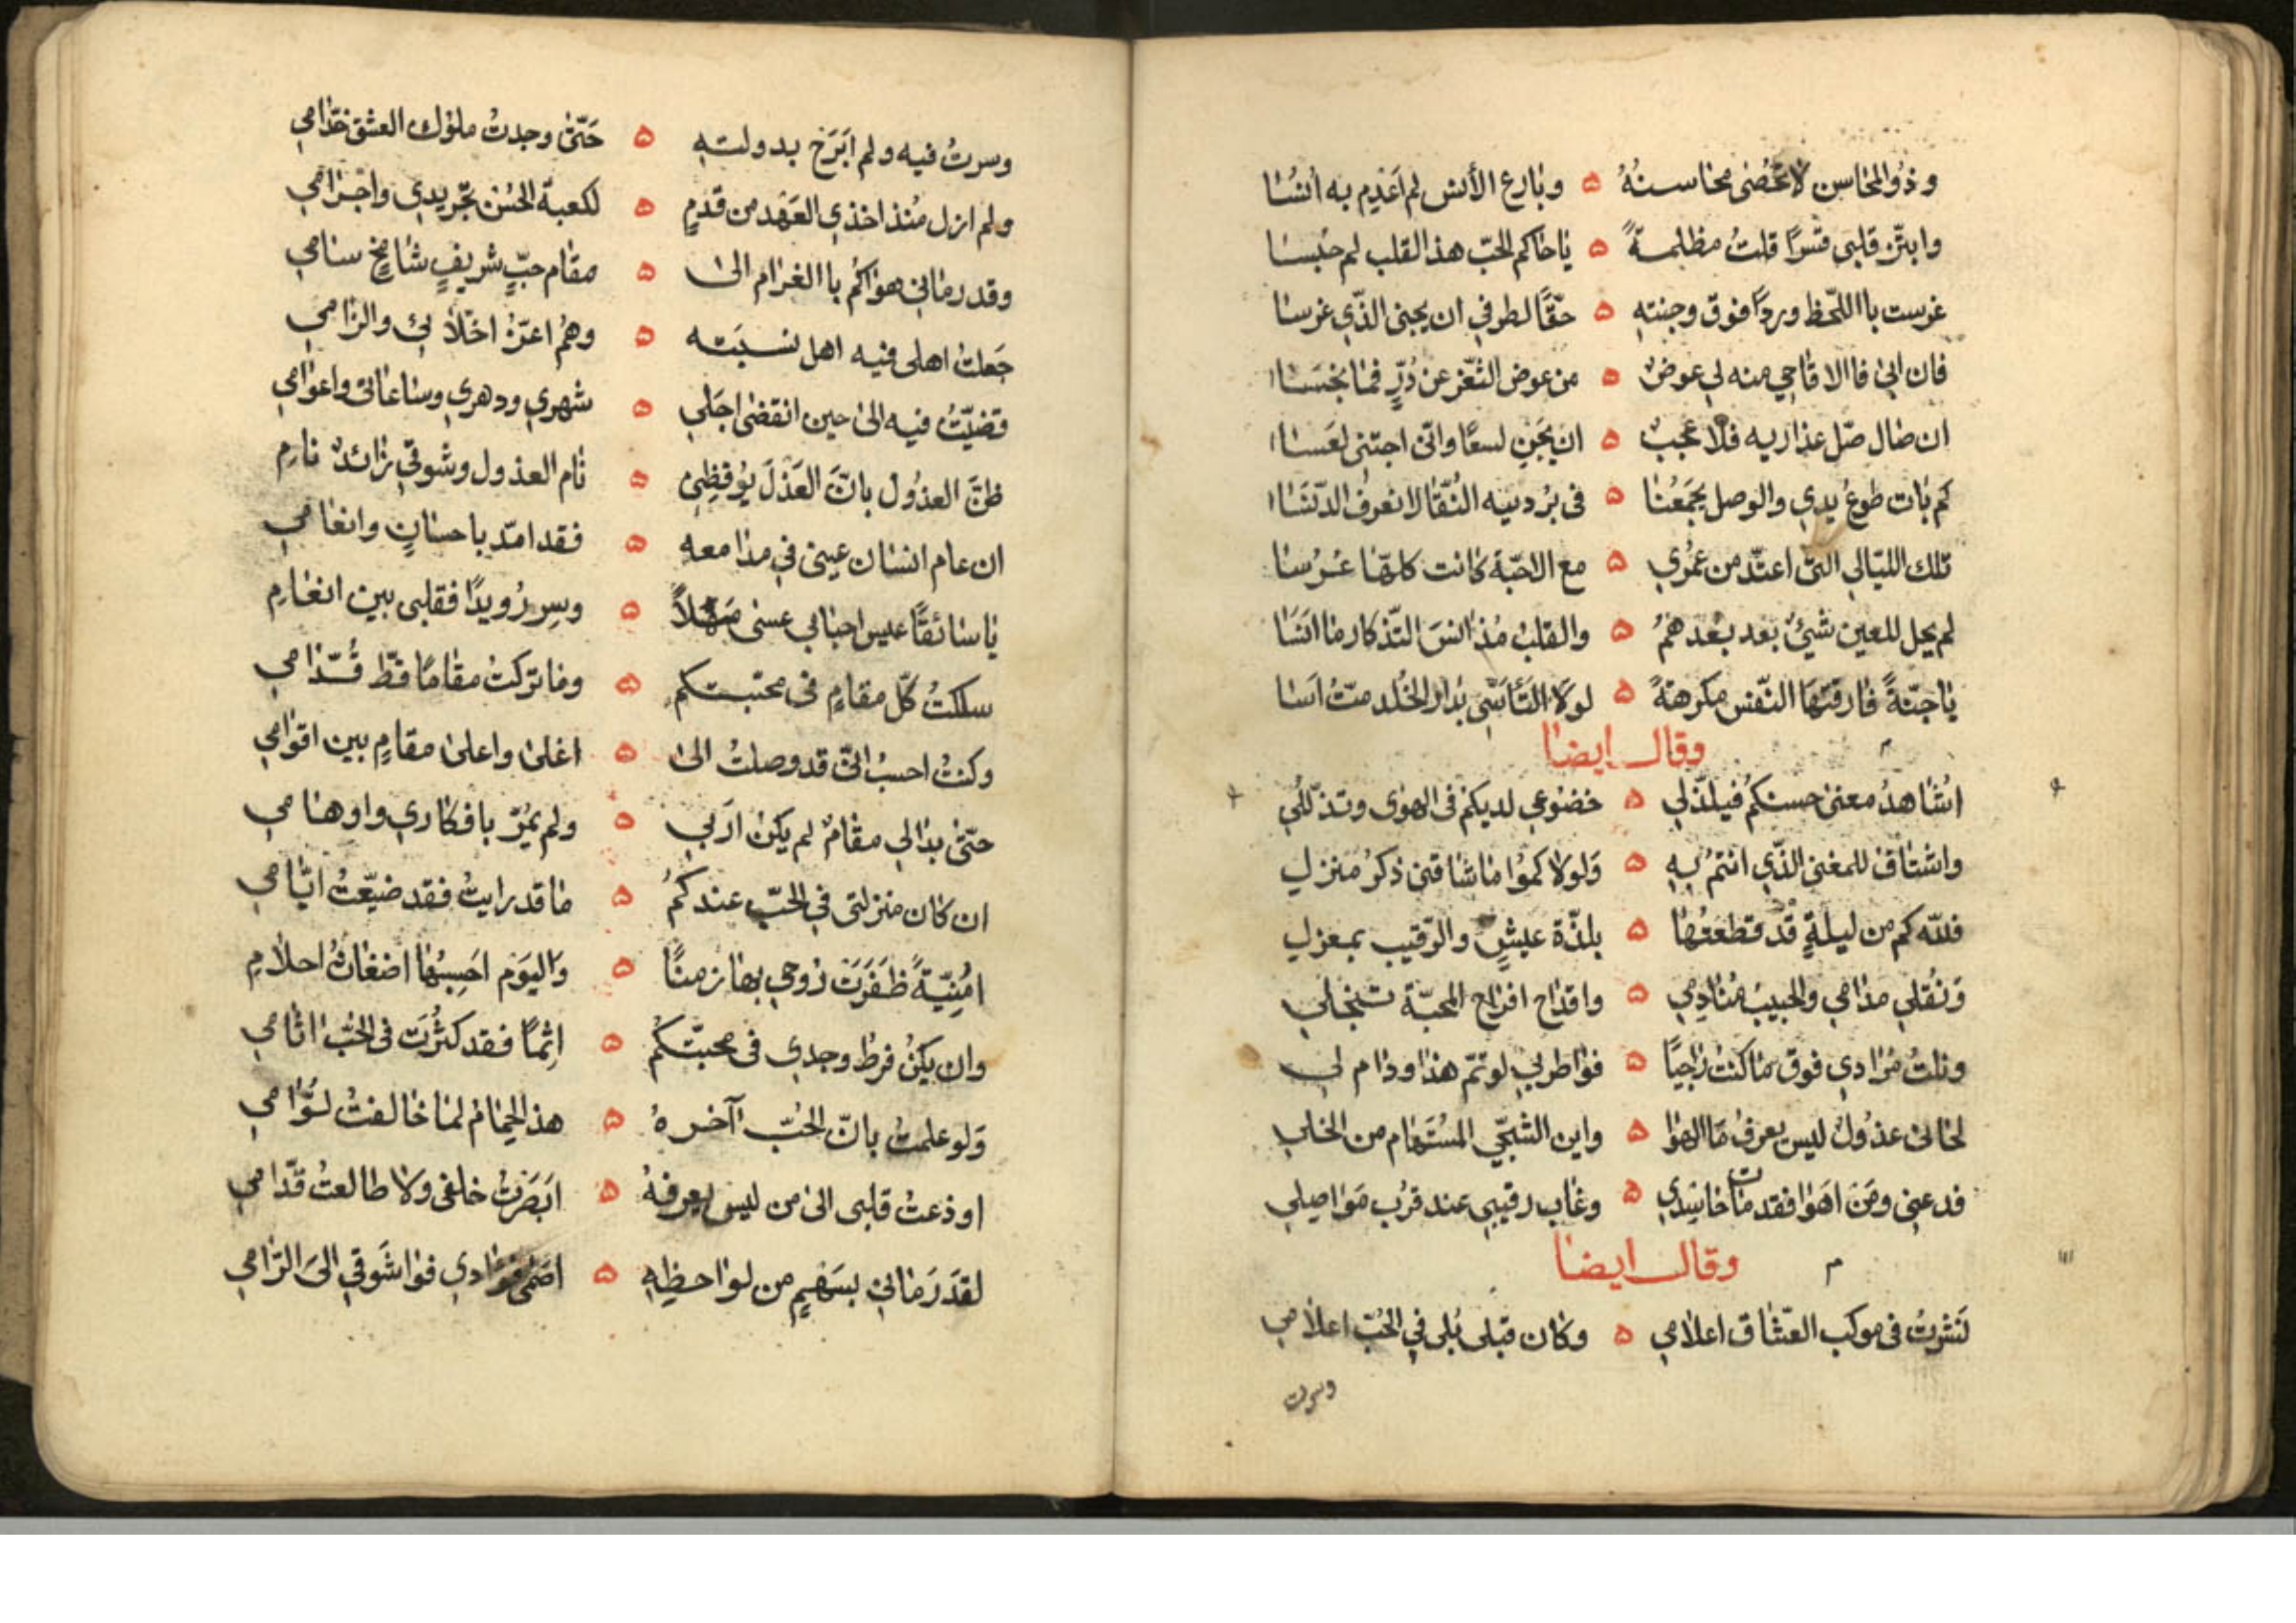 وذو المحاسن لا تحصى محاسنهُ ۵ وبارع الأنس لم اَعْدِم به اُنسُا
وابتزّ قلبي قسرًا قلتُ مظلمةً ۵ ياحاكم الحبّ هذا القلب لم حبُسا
غرست باللّحظ وردًا فوق وجنتهِ ۵ حقًّا لطرفي ان يجنى الذّي غرسا
فان ابىٰ فاالاقاحي منه لي عوضٌ ۵ من عوض الثغرعن دُرٍّ فما بخسَا
ان صال صلّ عذاريه فلا عجبٌ ۵ ان يجَنِ لسعًا وانّي اجتنى لعَسا
كم بات طوعُ يدي والوصل يجمَعُنا ۵ في بُردييه التُقَا لا نعرفُ الدّنسَا
تلك الليالي التي اعتدّ من عمُري ۵ مع الاحبّة كانت كلّها عُرُسا
لم يحل للعين شيئٌ بعد بعْدهمُ ۵ والقلبُ مُذ انسَ التّذكار ما انسَا
ياجنّةً فارقتهَا النّفس مكرهةً ۵ لولَا التَأسّي بدار الخُلد متّ اَسا
وقال ايضا
اشُاهدُ معنى حسنكمُ فيلذّلي ۵ خضوعي لديكم فى الهوى وتذلّلي
واشتاقُ للمغنى الذّي انتمُ بهِ ۵ وَلولاكموُا ماشاقنى ذكرُ منزلِ
فللّه كم من ليلةٍ قد قطعتُهَا ۵ بلذّة عيشٍ والرّقيب بمعزلِ
وَنقُلي مدامي والحبيبُ مُنادمِي ۵ واقداح افراح المحبّة تنجلي
ونلتُ مُرادي فوق ماكنت رَاجيًا ۵ فواطربي لو تمّ هذا ودام لي
لحانى عذُولُ ليس يعرفُ ما الهوا ۵ واين الشجّي المُستَهام من الخلي
فدعنى ومَن اهوَا فقد مات حاسِدي ۵ وغاب رقيبي عند قرُب مَواصِلي
وقال ايضا
نَشرتُ فى موكب العشّاق اعلامي ۵ وكان قبلى بُلى في الحُبّ اعلامي
وسرت
وسرتُ فيه ولم اَبَرَح بدولتهِ ۵ حَتّىٰ وجدتُ ملوُك العشق خدّامي
ولم ازل مُنذ اخذي العَهَد من قدَمٍ ۵ لكعبة الحُسُن تجْريدي واحْرَامي
وقد رماني هواكُم باالغرام الىٰ ۵ مقام حبٍّ شريفٍ شامخٍ سامي
جَعلتُ اهلى فيه اهل نسبَته ۵ وهُم اعزّةُ اخلّائي والزامي
قضيّتُ فيه الىٰ حين انقضىٰ اجَلي ۵ شهري ودهري وساعاتي واعوامي
ظنّ العذُول بانّ العَذْلَ يوُقِظِني ۵ نام العذول وشوقي زائدٌ نامِ
ان عام انسان عينى في مدامعهِ ۵ فقد امدّ باحسانٍ وانعامي
ياسائقًا عيس احبابي عسىٰ مَهَلًا ۵ وسِر رُويدًا فقلبي بين انعامِ
سلكتُ كلّ مقامٍ في محبتكم ۵ وماتركتُ مقامًا قطّ قُدّامي
وكنتُ احسبُ انّي قد وصلتُ الىٰ ۵ اغلىٰ واعلىٰ مقامٍ بين اقوامي
حتّى بدالي مقامٌ لم يكن ارَبي ۵ ولم يَمُرّ بافكاري واوهامي
ان كان منزلتى في الحُبّ عندكُمُ ۵ ما قد رايتُ فقد ضيّعتُ ايّامي
امُنِيّةً ظَفَرَتَ رُوحي بها زمنًا ۵ وَاليوَم احَسِبُهَا اضغاثُ احلامِ
وان يكنُ فرطُ وجدي فى محبتّكمُ ۵ اِثمًا فقد كثرُت فى الحُبّ اثامي
وَلو علمتُ بانّ الحُبّ آخرهُ ۵ هذ الحِمَامُ لما خالفتُ لُوّامي
اودعتُ قلبى الىٰ من ليس يعرفهُ ۵ ابَصَرتُ خلفى ولا طالعتُ قدّامي
لقدَ رَماني بسَهمٍ من لواحظِهِ ۵ اصَمىٰ فؤادي فواشَوقي الىَ الرّامي